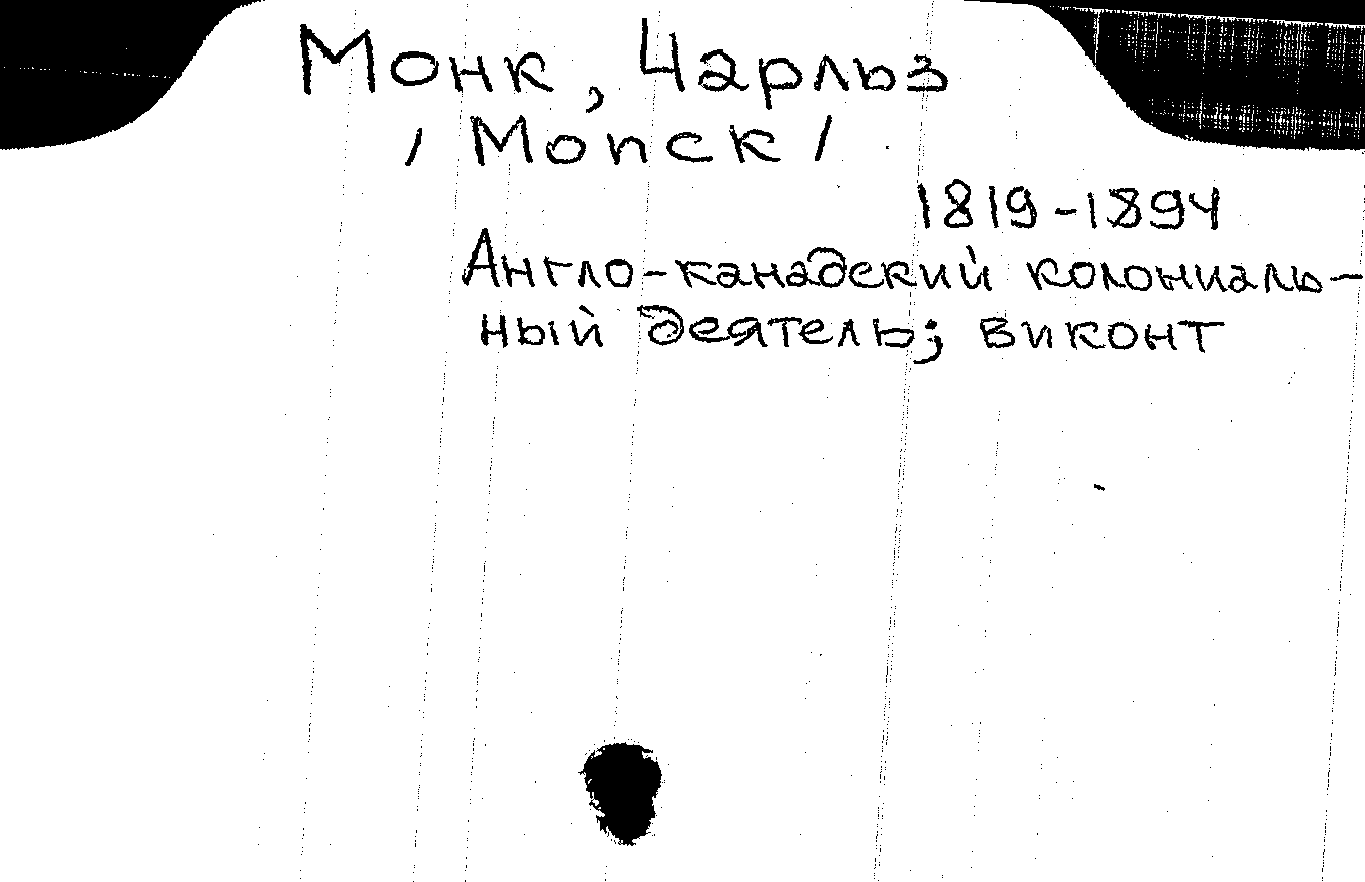 Монк, Чарльз
/Monck/
1819-1894
Англо-канадский колониаль-
ный деятель; виконт